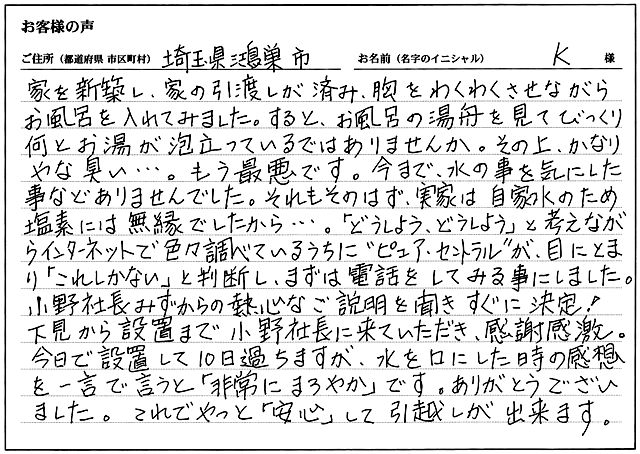 お客様の声
ご住所（都道府県 市区町村） 埼玉県鴻巣市 お名前（名字のイニシャル） K 様
家を新築し、家の引渡しが済み、胸をわくわくさせながら
お風呂を入れてみました。すると、お風呂の湯舟を見てびっくり
何とお湯が泡立っているではありませんか。その上、かなり
やな臭い…。もう最悪です。今まで、水の事を気にした
事などありませんでした。それもそのはず、実家は自家水のため
塩素には無縁でしたから…。「どうしよう、どうしよう」と考えなが
らインターネットで色々調べているうちに"ピュア・セントラル"が、目にとま
り「これしかない」と判断し、まずは電話をしてみる事にしました。
小野社長みずからの熱心なご説明を聞きすぐに決定！
下見から設置まで小野社長に来ていただき、感謝感激。
今日で設置して10日過ちますが、水を口にした時の感想
を一言で言うと「非常にまろやか」です。ありがとうござい
ました。これでやっと「安心」して引越しが出来ます。